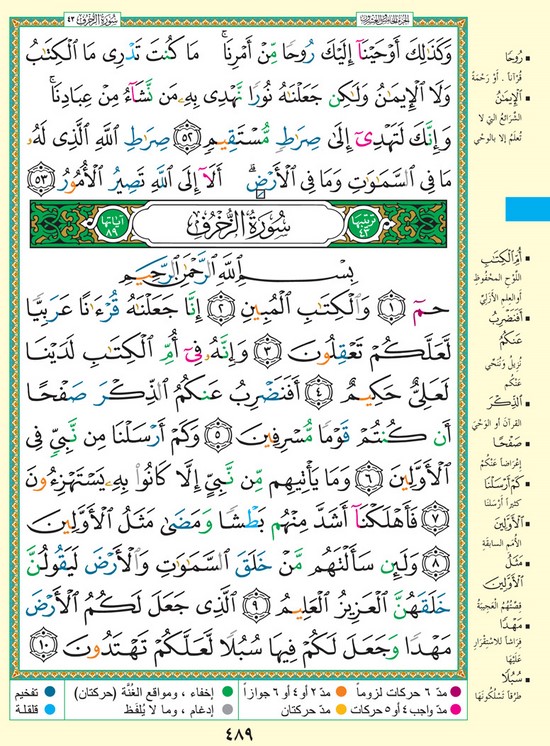 سورة الزخرف ٤٣
الجزء الخامس والعشرون
وَكَذَٰلِكَ أَوْحَيْنَآ إِلَيْكَ رُوحًا مِّنْ أَمْرِنَا ۚ مَا كُنتَ تَدْرِى مَا ٱلْكِتَٰبُ
وَلَا ٱلْإِيمَٰنُ وَلَٰكِن جَعَلْنَٰهُ نُورًا نَّهْدِى بِهِۦ مَن نَّشَآءُ مِنْ عِبَادِنَا ۚ
وَإِنَّكَ لَتَهْدِىٓ إِلَىٰ صِرَٰطٍ مُّسْتَقِيمٍ ٥٢ صِرَٰطِ ٱللَّهِ ٱلَّذِى لَهُۥ
مَا فِى ٱلسَّمَٰوَٰتِ وَمَا فِى ٱلْأَرْضِ ۗ أَلَآ إِلَى ٱللَّهِ تَصِيرُ ٱلْأُمُورُ ٥٣
ترتيبها ٤٣ سُورَةُ الزُّخْرُفِ آياتها ٨٩
بِسْمِ ٱللَّهِ ٱلرَّحْمَٰنِ ٱلرَّحِيمِ
حمٓ ١ وَٱلْكِتَٰبِ ٱلْمُبِينِ ٢ إِنَّا جَعَلْنَٰهُ قُرْءَٰنًا عَرَبِيًّا
لَّعَلَّكُمْ تَعْقِلُونَ ٣ وَإِنَّهُۥ فِىٓ أُمِّ ٱلْكِتَٰبِ لَدَيْنَا
لَعَلِىٌّ حَكِيمٌ ٤ أَفَنَضْرِبُ عَنكُمُ ٱلذِّكْرَ صَفْحًا
أَن كُنتُمْ قَوْمًا مُّسْرِفِينَ ٥ وَكَمْ أَرْسَلْنَا مِن نَّبِىٍّ فِى
ٱلْأَوَّلِينَ ٦ وَمَا يَأْتِيهِم مِّن نَّبِىٍّ إِلَّا كَانُوا۟ بِهِۦ يَسْتَهْزِءُونَ
٧ فَأَهْلَكْنَآ أَشَدَّ مِنْهُم بَطْشًا وَمَضَىٰ مَثَلُ ٱلْأَوَّلِينَ
٨ وَلَئِن سَأَلْتَهُم مَّنْ خَلَقَ ٱلسَّمَٰوَٰتِ وَٱلْأَرْضَ لَيَقُولُنَّ
خَلَقَهُنَّ ٱلْعَزِيزُ ٱلْعَلِيمُ ٩ ٱلَّذِى جَعَلَ لَكُمُ ٱلْأَرْضَ
مَهْدًا وَجَعَلَ لَكُمْ فِيهَا سُبُلًا لَّعَلَّكُمْ تَهْتَدُونَ ١٠
رُوحًا
قُرْآنًا . أَوْ رَحْمَةً
الْإِيمَٰنُ
الشَّرَائِعُ التي لا
تُعْلَمُ إلا بالوحْي
أُمِّ الْكِتَٰبِ
اللَّوْحِ المحْفُوظِ
أو العِلْمِ الأزَلِيِّ
أَفَنَضْرِبُ
عَنكُمُ
نُزِيلُ وَنُنَحِّي
عَنْكُم
الذِّكْرَ
القرآنَ أو الوَحْيَ
صَفْحًا
إعْرَاضًا عَنْكُمْ
كَمْ أَرْسَلْنَا
كثيرًا أَرْسَلْنَا
الْأَوَّلِينَ
الأُمَمِ السابِقةِ
مَثَلُ
الْأَوَّلِينَ
قِصَّتُهُمُ العَجِيبَةُ
مَهْدًا
فِرَاشًا للاسْتِقْرَارِ
عَلَيْهَا
سُبُلًا
طُرُقًا تَسْلُكُونَهَا
مدّ ٦ حركات لزوماً مدّ ٢ أو ٤ أو ٦ جوازاً إخفاء، ومواقع الغُنَّة (حركتان) تفخيم
مدّ واجب ٤ أو ٥ حركات مدّ حركتان إدغام، وما لا يُلفَظ قلقلة
٤٨٩